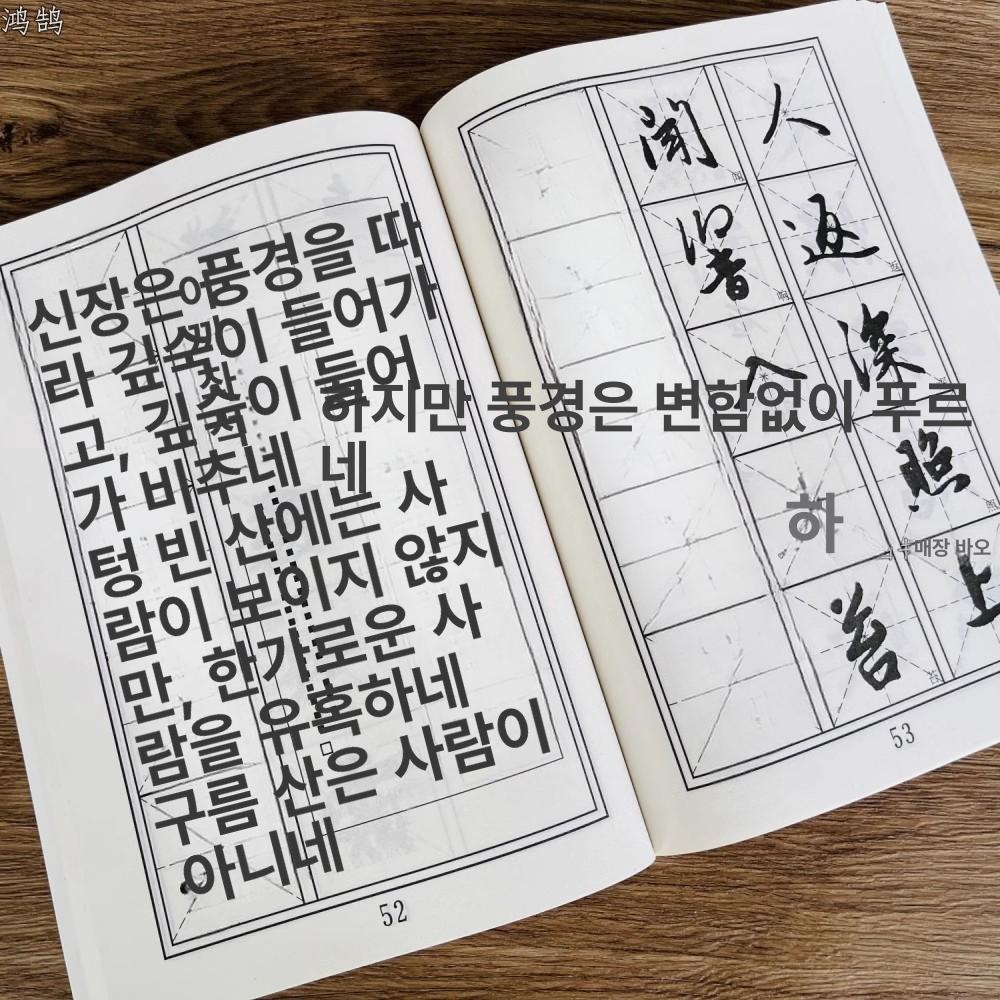 鸿鹄
신장은 풍경을 따
라 깊숙이 들어가
고, 깊숙이 들어
가 비추네 넨
텅 빈 산에는 사
람이 보이지 않지
만, 한가로운 사
람을 유혹하네
구름 산은 사람이
아니네
52
하지만 풍경은 변함없이 푸르
하
매장 바오
人
返
深
照
上
闻
響
入
苔
53